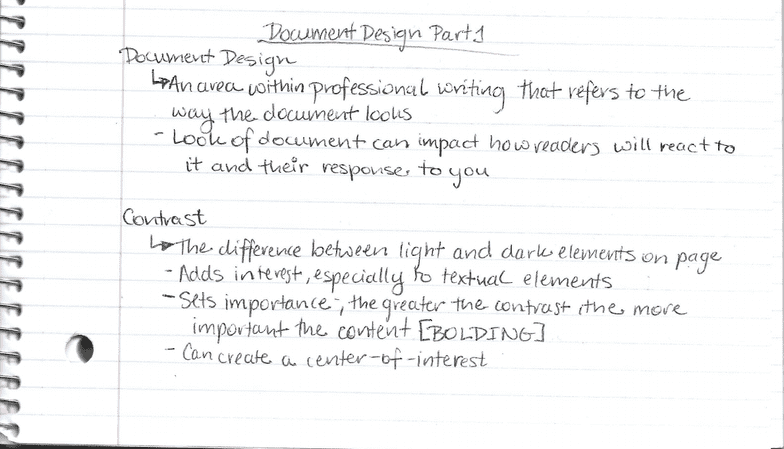 Document Design Part 1
Document Design
↳An area within professional writing that refers to the
way the document looks
- Look of document can impact how readers will react to
it and their response, to you
Contrast
↳The difference between light and dark elements on page
- Adds interest, especially to textual elements
- Sets importance, the greater the contrast, the more
important the content [BOLDING]
- Can create a center-of-interest